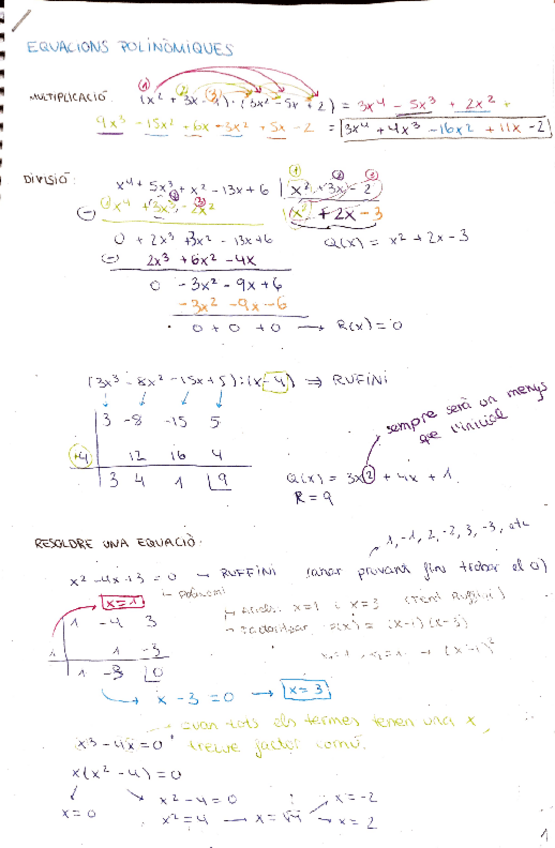 EQUACIONS POLINÒMIQUES
MULTIPLICACIÓ: (x² + 3x - 1) · (3x² - 5x + 2) = 3x⁴ - 5x³ + 2x² +
9x³ - 15x² + 6x - 3x² + 5x - 2 = 3x⁴ + 4x³ - 16x² + 11x - 2
DIVISIÓ: x⁴ + 5x³ + x² - 13x + 6 | x² + 3x - 2
(-) x⁴ + 3x³ - 2x² x² + 2x - 3
0 + 2x³ + 3x² - 13x + 6 Q(x) = x² + 2x - 3
(-) 2x³ + 6x² - 4x
0 - 3x² - 9x + 6
- 3x² - 9x - 6
0 + 0 + 0 → R(x) = 0
(3x³ - 8x² - 15x + 5) : (x - 4) ⇒ RUFINI
3 -8 -15 5
sempre serà un menys
que l'inicial
+4 12 16 4
3 4 1 9
Q(x) = 3x² + 4x + 1.
R = 9
RESOLDRE UNA EQUACIÓ.
1, -1, 2, -2, 3, -3, etc
x² - 4x + 3 = 0 → RUFFINI (anar provant fins trobar el 0)
polinomi
x = 1
1 -4 3
1 1 -3
1 -3 0
arrels: x = 1 i x = 3 (Tenl Ruffini)
factoritzar: P(x) = (x-1)(x-3)
x₁ = 1, x₂ = 1 → (x-1)²
→ x - 3 = 0 → x = 3
→ cuan tots els termes tenen una x,
x³ - 4x = 0 treure factor comú.
x(x² - 4) = 0
x = 0
x² - 4 = 0
x² = 4 → x = √4
x = -2
x = 2
1